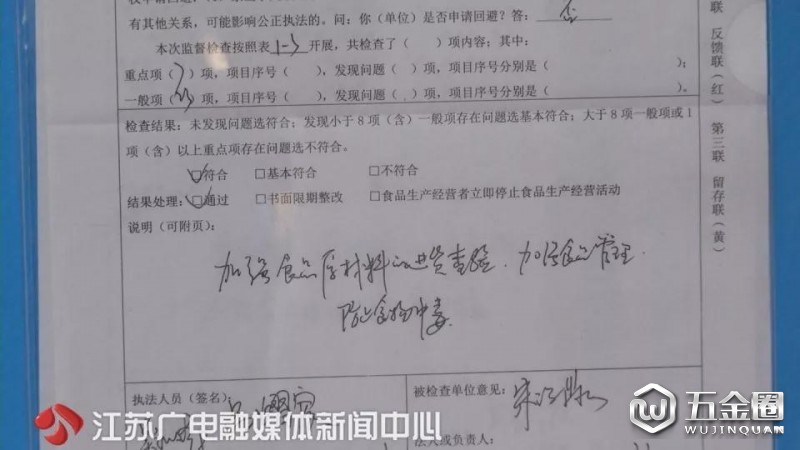 有其他关系，可能影响公正执法的。问：你（单位）是否申请回避？答：否
本次监督检查按照表1-3开展，共检查了（ ）项内容；其中：
重点项（7）项，项目序号（ ），发现问题（ ）项，项目序号分别是（ ）；
一般项（ ）项，项目序号（ ），发现问题（ ）项，项目序号分别是（ ）。
检查结果：未发现问题选符合；发现小于8项（含）一般项存在问题选基本符合；大于8项一般项或1
项（含）以上重点项存在问题选不符合。
☑符合 □基本符合 □不符合
结果处理：☑通过 □书面限期整改 □食品生产经营者立即停止食品生产经营活动
说明（可附页）：
加强食品原材料的进货查验、加强食品管理
防止食物中毒
执法人员（签名）：
被检查单位意见：
法人或负责人：
联 反馈联（红） 第三联 留存联（黄）
江苏广电融媒体新闻中心
五金圈
WUJINQUAN